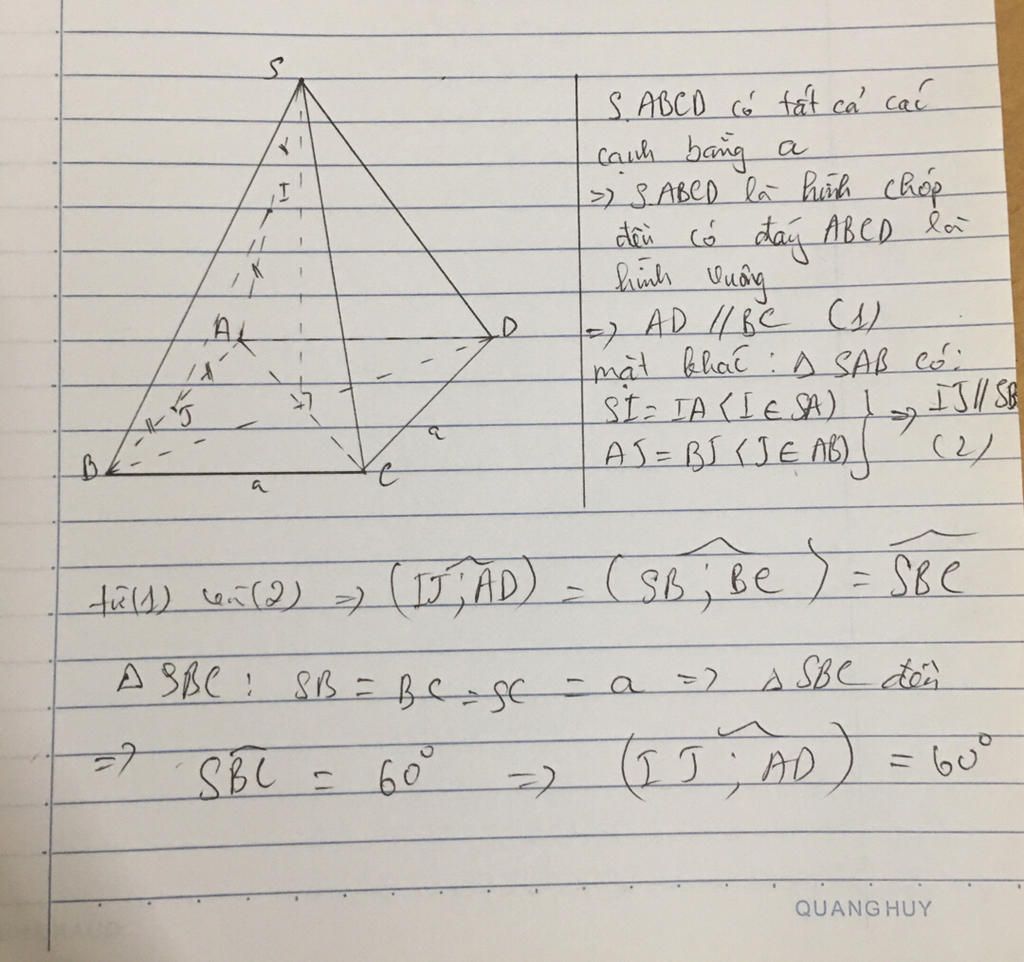 S
I
A
D
J
B
C
a
a
S.ABCD có tất cả các
cạnh bằng a
=> S.ABCD là hình chóp
đều có đáy ABCD là
hình vuông
=> AD // BC (1)
mặt khác: Δ SAB có:
SI = IA (I ∈ SA) } => IJ // SB
AJ = BJ (J ∈ AB) } (2)
từ (1) và (2) => (IJ; AD) = (SB; BC) = SBC
Δ SBC: SB = BC = SC = a => Δ SBC đều
=> SBC = 60° => (IJ; AD) = 60°
QUANG HUY